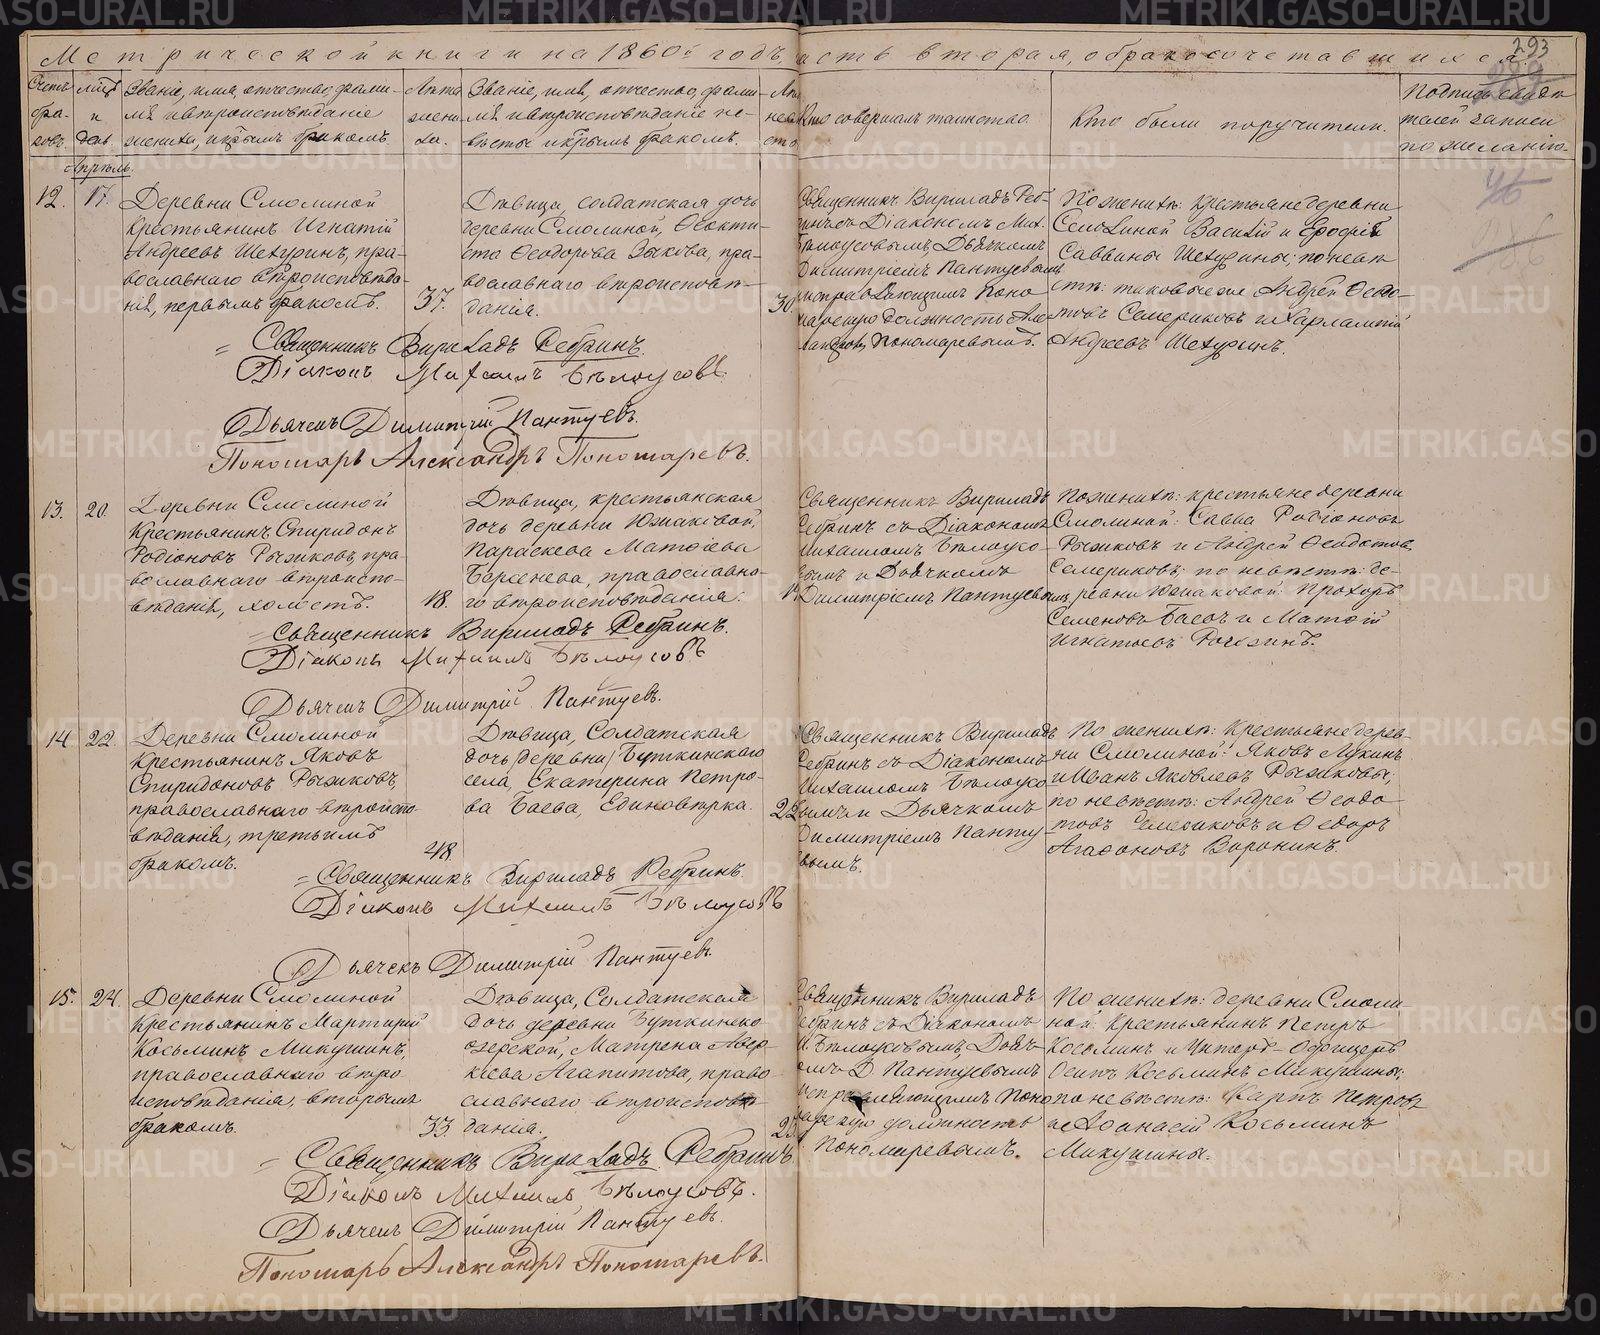 Метрической книги на 1860й годъ, часть вторая, о бракосочетавшихся
293
Счетъ бра-ковъ.
Мѣсяцъ и день.
Званіе, имя, отчество, фами-
лія и вѣроисповѣданіе
жениха, и которымъ бракомъ.
Лѣта
жени-
ха.
Званіе, имя, отчество, фами-
лія и вѣроисповѣданіе не-
вѣсты и которымъ бракомъ.
Кто совершалъ таинство.
Кто были поручители.
Подпись свидѣ-
телей записи
по желанію.
Апрѣль.
12.
17.
Деревни Смолиной
крестьянинъ Игнатій
Андреевъ Шетуринъ, пра-
вославнаго вѣроисповѣда-
нія, первымъ бракомъ.
37.
Дѣвица, солдатская дочь
деревни Смолиной, Ѳеокти-
ста Ѳеодорова Зыкова, пра-
вославнаго вѣроисповѣ-
данія.
30.
Священникъ Вириладъ Реб-
ринъ съ Діакономъ Мих.
Бѣлоусовымъ, Дьячкомъ
Димитріемъ Пантуевымъ
исправляющимъ Поно-
марскую должность Але-
ксандромъ Пономаревымъ.
По женихѣ: крестьяне деревни
Смолиной Василій и Ерофей
Саввины Шетурины; по невѣ-
стѣ: таковые же Андрей Ѳедо-
товъ Семериковъ и Харлампій
Андреевъ Шетуринъ.
= Священникъ Вириладъ Ребринъ.
Діаконъ Михаилъ Бѣлоусовъ.
Дьячекъ Димитрій Пантуевъ.
Пономарь Александръ Пономаревъ.
13.
20.
Деревни Смолиной
Крестьянинъ Спиридонъ
Родіоновъ Рыжиковъ, пра-
вославнаго вѣроиспо-
вѣданія, холостъ.
18.
Дѣвица, крестьянская
дочь деревни Южаковой,
Параскева Матѳіева
Берсенева, православна-
го вѣроисповѣданія.
Священникъ Вириладъ
Ребринъ съ Діакономъ
Михаиломъ Бѣлоусо-
вымъ и Дьячкомъ
Димитріемъ Пантуевымъ
По женихѣ: крестьяне деревни
Смолиной: Савва Родіоновъ
Рыжиковъ и Андрей Ѳеодотов.
Семериковъ; по невѣстѣ: де-
ревни Южаковой: Прохоръ
Семеновъ Баевъ и Матѳій
Игнатьевъ
= Священникъ Вириладъ Ребринъ.
Діаконъ Михаилъ Бѣлоусовъ
Дьячекъ Димитрій Пантуевъ.
14.
22.
Деревни Смолиной
Крестьянинъ Яковъ
Спиридоновъ Рыжиковъ,
православнаго вѣроиспо-
вѣданія, третьимъ
бракомъ.
48
Дѣвица, Солдатская
дочь деревни Буткинскаго
села, Екатерина Петро-
ва Баева, Единовѣрка.
22
Священникъ Вириладъ
Ребринъ съ Діакономъ
Михаиломъ Бѣлоусо-
вымъ и Дьячкомъ
Димитріемъ Панту-
вымъ.
По женихѣ: Крестьяне дерев-
ни Смолиной: Яковъ Лукинъ
и Иванъ Яковлевъ Рыжиковы,
по невѣстѣ: Андрей Ѳеодо-
товъ Семериковъ и Ѳедоръ
Агаѳоновъ Воронинъ.
= Священникъ Вириладъ Ребринъ.
Діаконъ Михаилъ Бѣлоусовъ
Дьячекъ Димитрій Пантуевъ.
15.
24.
Деревни Смолиной
Крестьянинъ Мартирій
Косьминъ Микушинъ,
православнаго вѣро-
исповѣданія, вторымъ
бракомъ.
33.
Дѣвица, Солдатская
дочь деревни Буткинско-
озерской, Матрена Авер-
кіева Агапитова, право-
славнаго вѣроисповѣ-
данія.
Священникъ Вириладъ
Ребринъ съ Діакономъ
М. Бѣлоусовымъ, Дьяч-
комъ Д. Пантуевымъ
исправляющимъ Поно-
марскую должность
Пономаревымъ.
По женихѣ: деревни Смоли-
ной: Крестьянинъ Петръ
Косьминъ и Унтеръ-Офицеръ
Осипъ Косьминъ Микушины;
по невѣстѣ: Карпъ Петровъ
и Аѳанасій Косьминъ
Микушины.
= Священникъ Вириладъ Ребринъ.
Діаконъ Михаилъ Бѣлоусовъ.
Дьячекъ Димитрій Пантуевъ.
Пономарь Александръ Пономаревъ.
METRIKI.GASO-URAL.RU